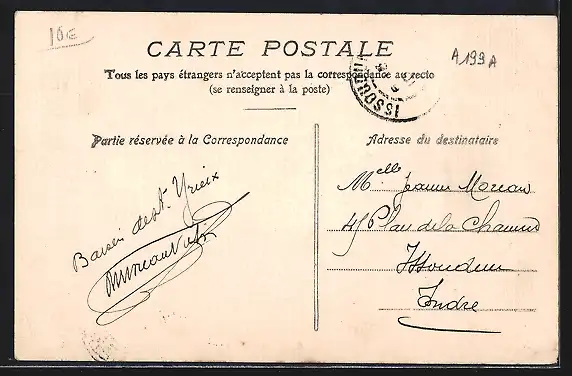 10€
A199A
CARTE POSTALE
Tous les pays étrangers n'acceptent pas la correspondance au recto
(se renseigner à la poste)
ISSOUDUN
Partie réservée à la Correspondance
Adresse du destinataire
Melle Jeanne Moreau
45 de la
Issoudun
Indre
de St. Yrieix